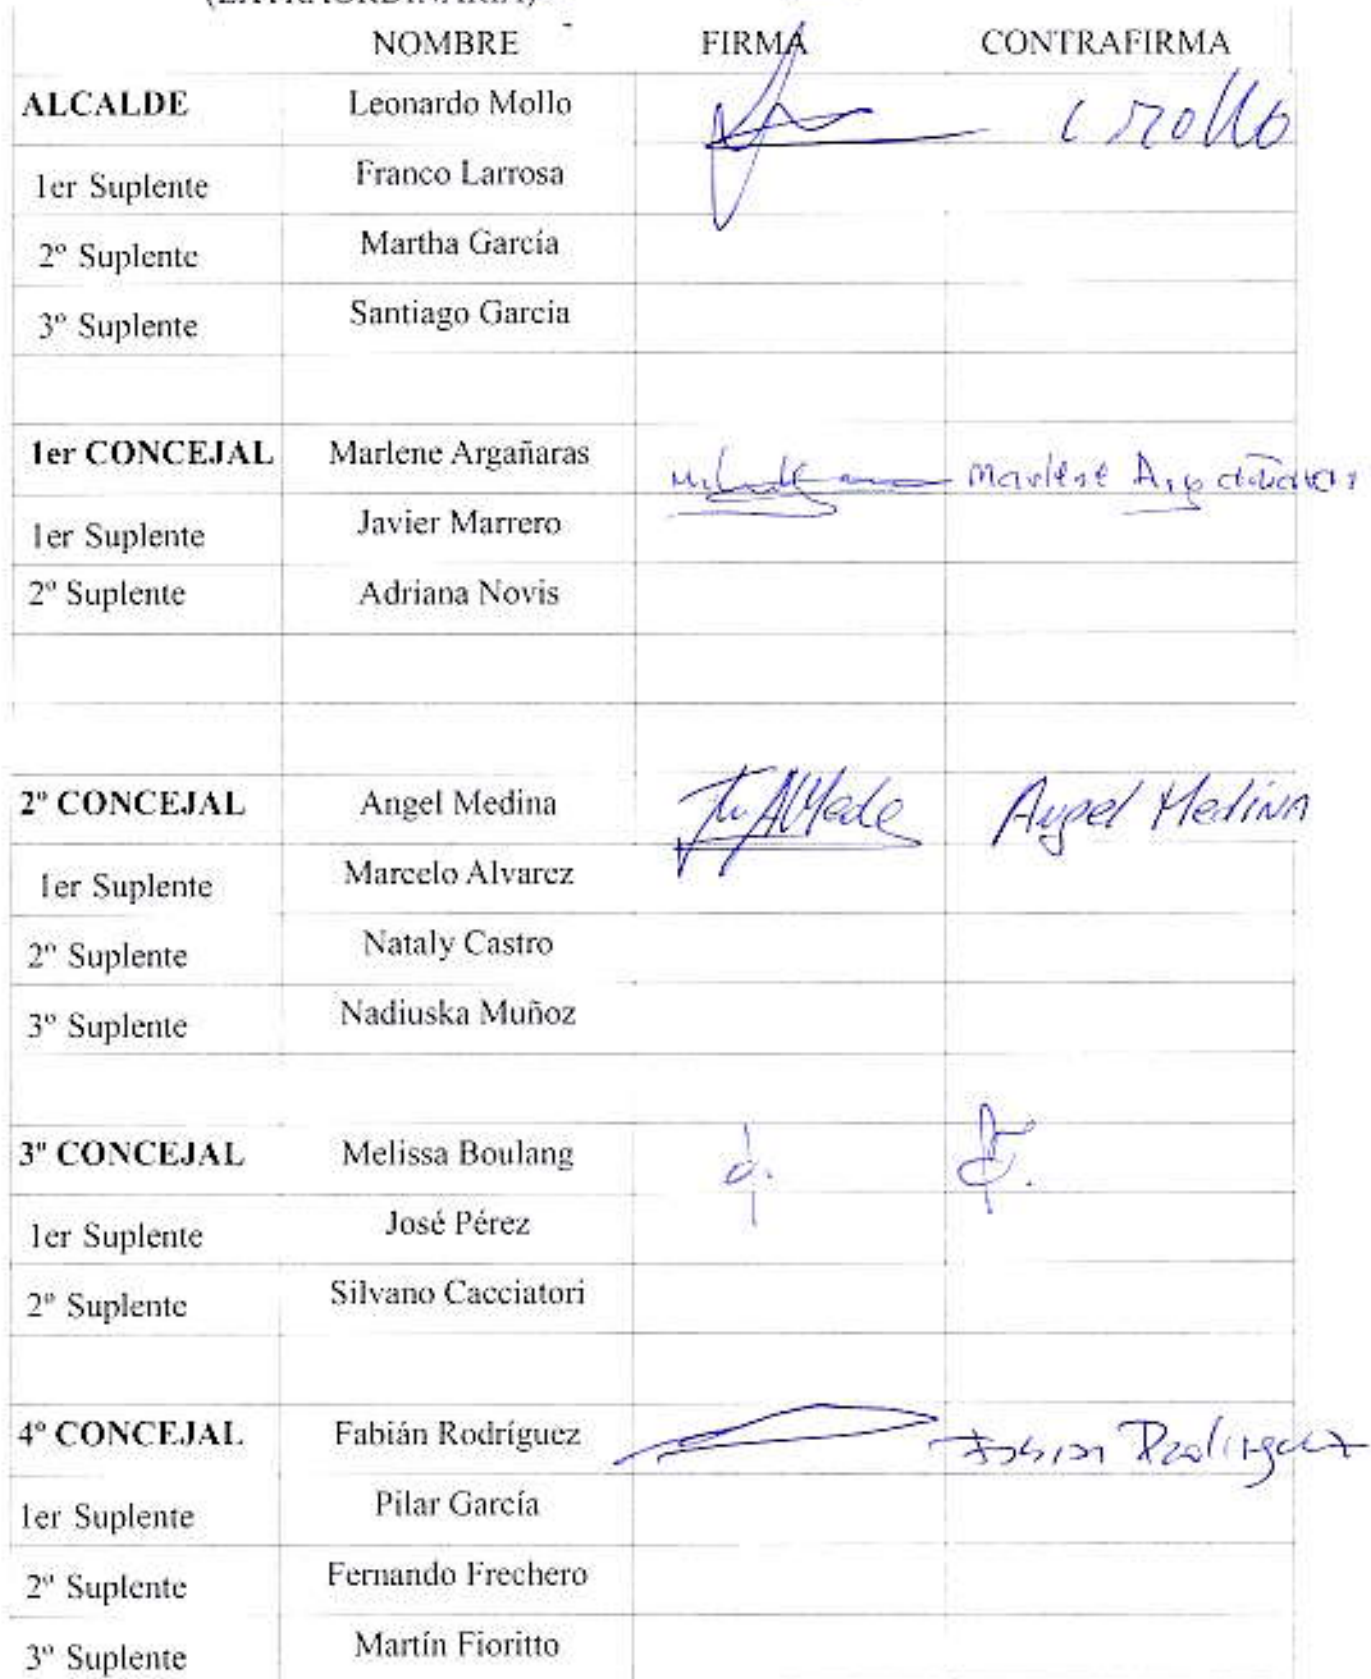 (EXTRAORDINARIA)
NOMBRE FIRMA CONTRAFIRMA
ALCALDE Leonardo Mollo Mollo
1er Suplente Franco Larrosa
2º Suplente Martha García
3º Suplente Santiago García
1er CONCEJAL Marlene Argañaras Marlene Argañaras
1er Suplente Javier Marrero
2º Suplente Adriana Novis
2º CONCEJAL Angel Medina Angel Medina
1er Suplente Marcelo Alvarez
2º Suplente Nataly Castro
3º Suplente Nadiuska Muñoz
3º CONCEJAL Melissa Boulang
1er Suplente José Pérez
2º Suplente Silvano Cacciatori
4º CONCEJAL Fabián Rodríguez Fabian Rodriguez
1er Suplente Pilar García
2º Suplente Fernando Frechero
3º Suplente Martín Fioritto